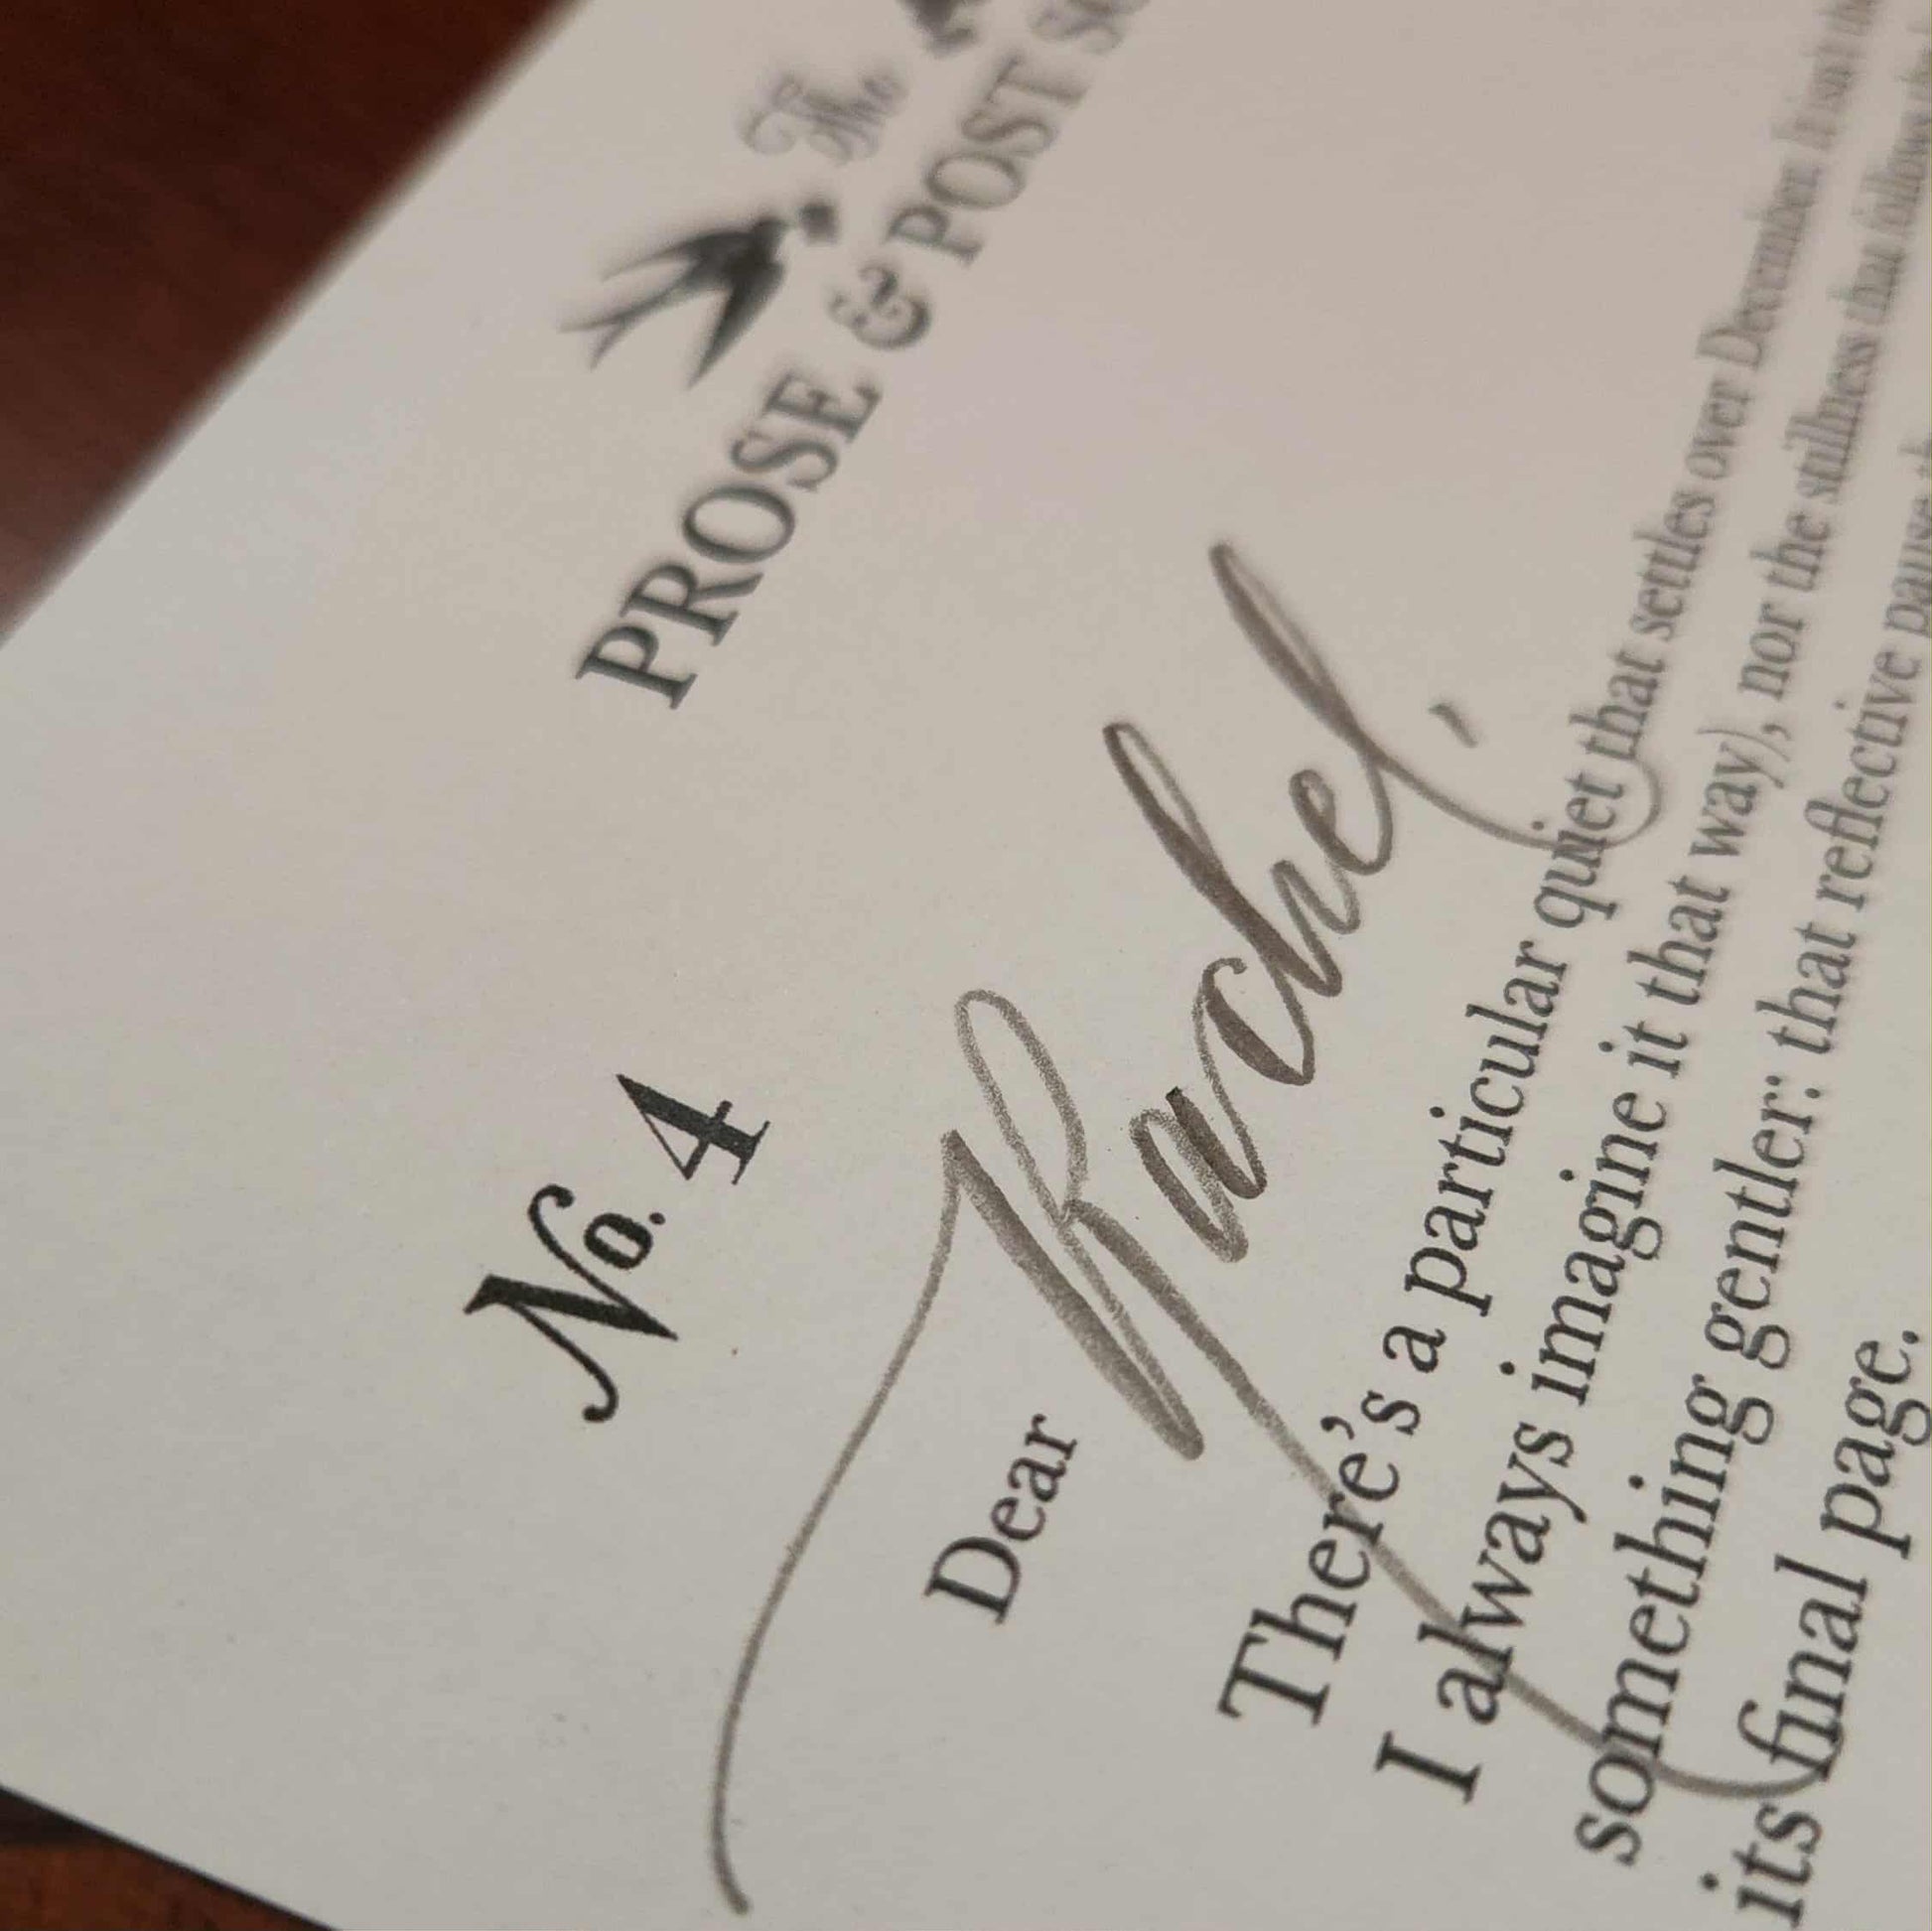 The
PROSE & POST
No. 4
Dear Rachel,
There's a particular quiet that settles over December. It isn't
I always imagine it that way), nor the stillness that follows
something gentler: that reflective pause
its final page.